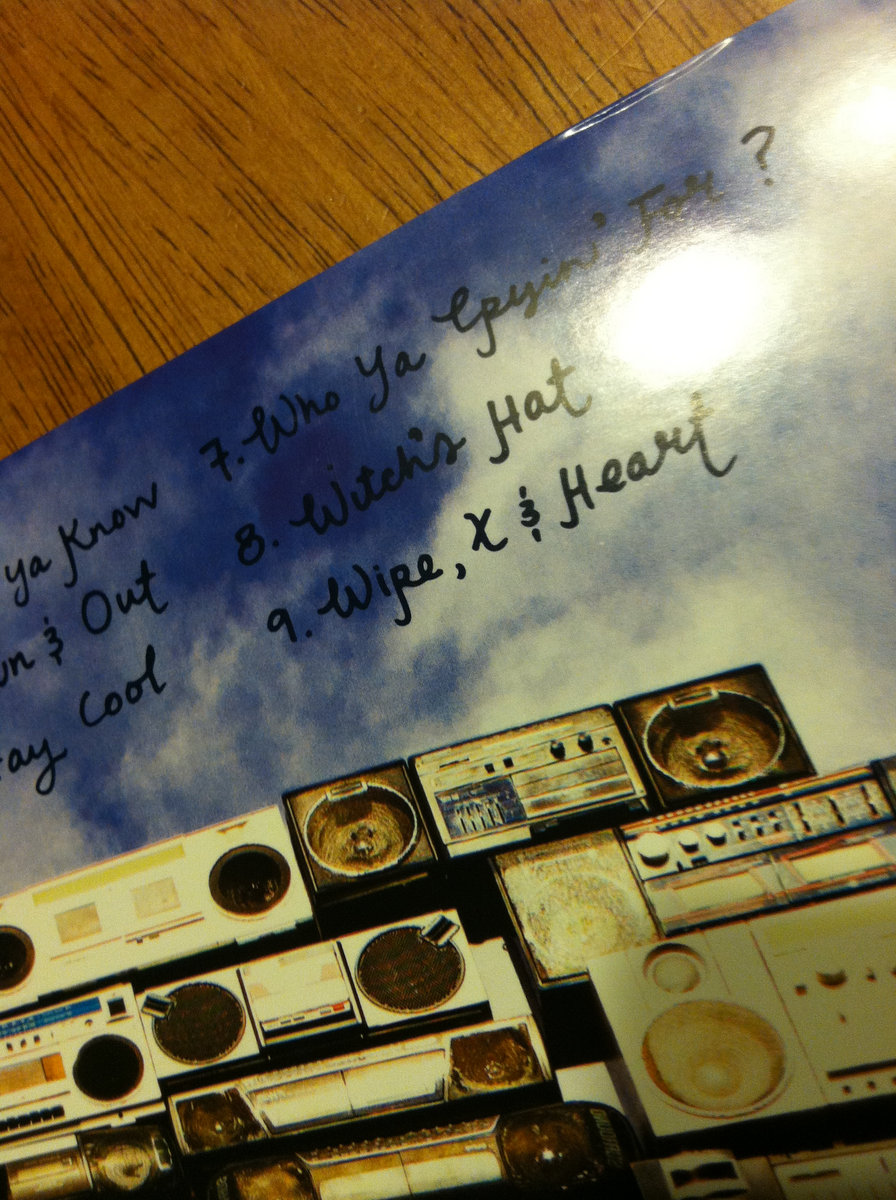 ya Know
wn & Out
tay Cool
7. Who Ya Spyin' For ?
8. Witch's Hat
9. Wipe, X & Heart